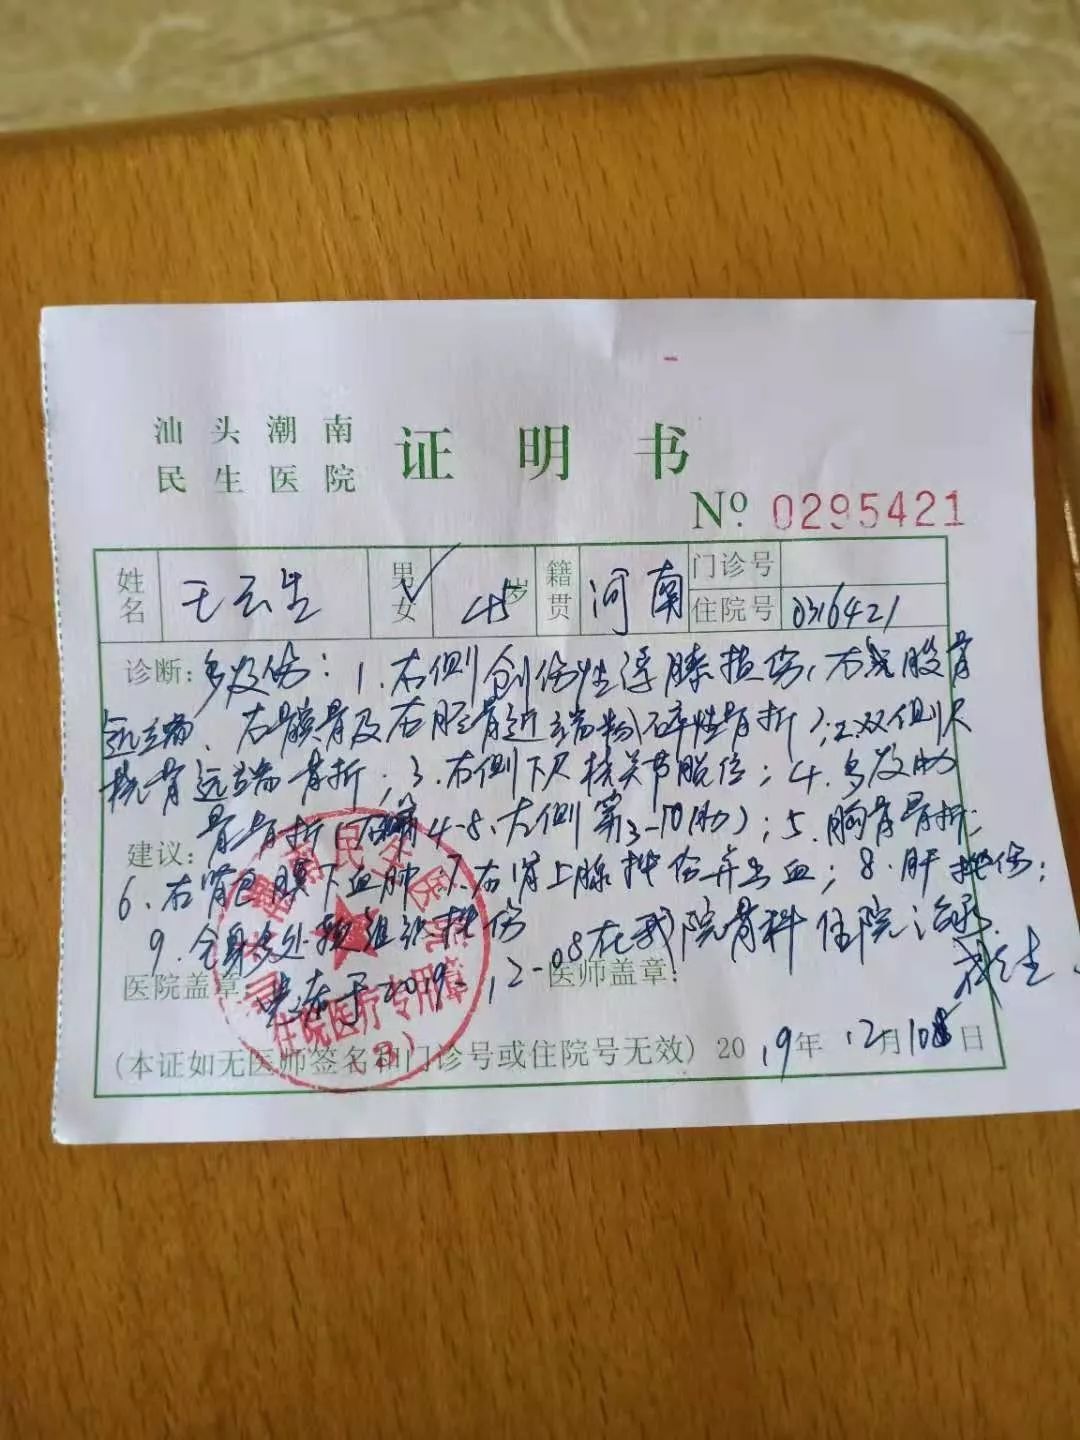 汕头潮南
民生医院
证明书
No. 0295421
姓名 王云生 男女 45岁 籍贯 河南 门诊号
住院号 0316421
诊断: 多发伤: 1.右侧创伤性浮膝损伤(右侧股骨
远端、右髌骨及右胫骨近端粉碎性骨折);2.双侧尺
桡骨远端骨折;3.右侧下尺桡关节脱位;4.多发肋
骨骨折(右侧4-8、左侧第3-10肋);5.胸骨骨折;
建议:
6.右肾包膜下血肿;7.右肾上腺挫伤并出血;8.肝挫伤;
9.全身多处软组织挫伤
患者于2019-12-08在我院骨科住院治疗.
医院盖章: 医师盖章:
住院医疗专用章
(3)
(本证如无医师签名和门诊号或住院号无效) 2019年12月10日